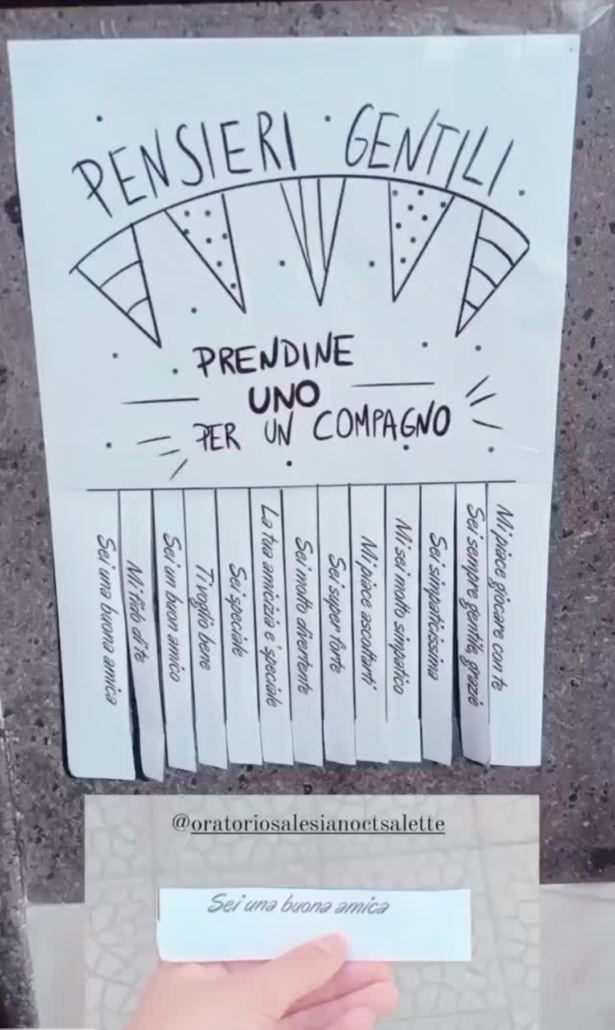 PENSIERI GENTILI
PRENDINE
UNO
PER UN COMPAGNO
Sei una buona amica
Mi fido di te
Sei un buon amico
Ti voglio bene
Sei speciale
La tua amicizia è speciale
Sei molto divertente
Sei super forte
Mi piace ascoltarti
Mi sei molto simpatico
Sei simpaticissima
Sei sempre gentile, grazie
Mi piace giocare con te
@oratoriosalesianoctsalette
Sei una buona amica